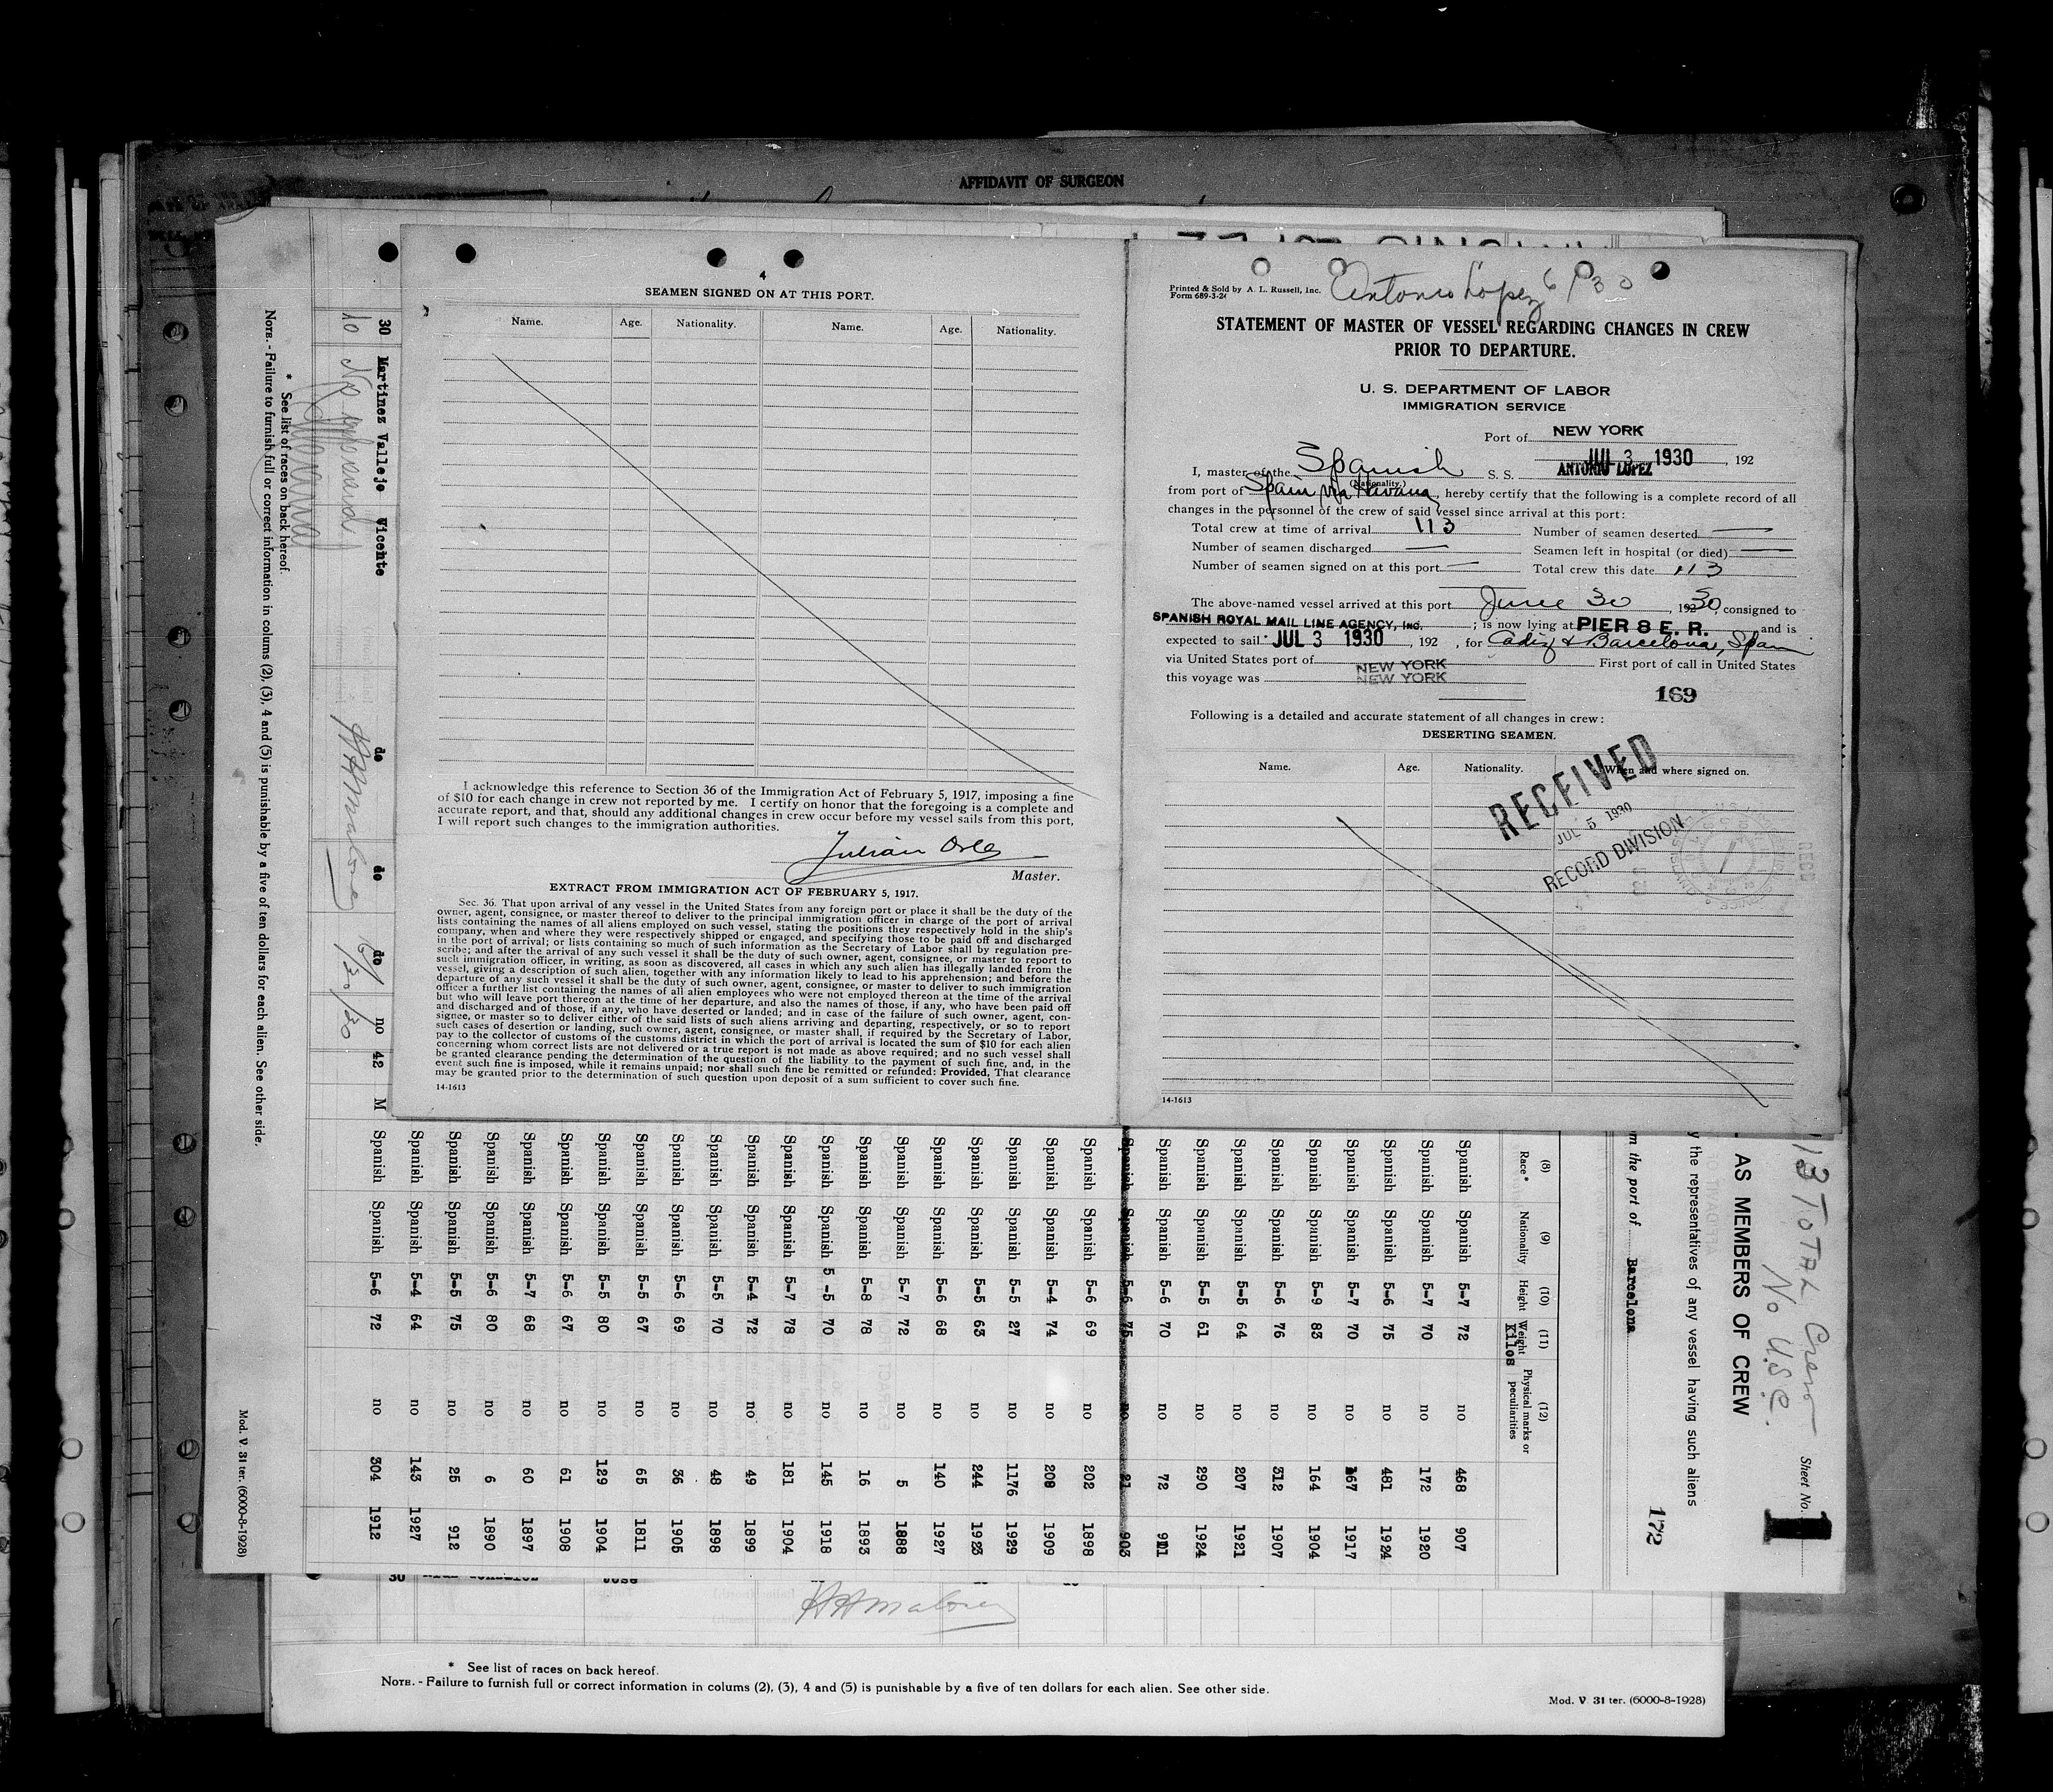 AFFIDAVIT OF SURGEON
4
SEAMEN SIGNED ON AT THIS PORT.
Name. Age. Nationality. Name. Age. Nationality.
I acknowledge this reference to Section 36 of the Immigration Act of February 5, 1917, imposing a fine
of $10 for each change in crew not reported by me. I certify on honor that the foregoing is a complete and
accurate report, and that, should any additional changes in crew occur before my vessel sails from this port,
I will report such changes to the immigration authorities.
Julian
Master.
EXTRACT FROM IMMIGRATION ACT OF FEBRUARY 5, 1917.
Sec. 36. That upon arrival of any vessel in the United States from any foreign port or place it shall be the duty of the
owner, agent, consignee, or master thereof to deliver to the principal immigration officer in charge of the port of arrival
lists containing the names of all aliens employed on such vessel, stating the positions they respectively hold in the ship's
company, when and where they were respectively shipped or engaged, and specifying those to be paid off and discharged
in the port of arrival; or lists containing so much of such information as the Secretary of Labor shall by regulation pre-
scribe; and after the arrival of any such vessel it shall be the duty of such owner, agent, consignee, or master to report to
such immigration officer, in writing, as soon as discovered, all cases in which any such alien has illegally landed from the
vessel, giving a description of such alien, together with any information likely to lead to his apprehension; and before the
departure of any such vessel it shall be the duty of such owner, agent, consignee, or master to deliver to such immigration
officer a further list containing the names of all alien employees who were not employed thereon at the time of the arrival
but who will leave port thereon at the time of her departure, and also the names of those, if any, who have been paid off
and discharged and of those, if any, who have deserted or landed; and in case of the failure of such owner, agent, con-
signee, or master so to deliver either of the said lists of such aliens arriving and departing, respectively, or so to report
such cases of desertion or landing, such owner, agent, consignee, or master shall, if required by the Secretary of Labor,
pay to the collector of customs of the customs district in which the port of arrival is located the sum of $10 for each alien
concerning whom correct lists are not delivered or a true report is not made as above required; and no such vessel shall
be granted clearance pending the determination of the question of the liability to the payment of such fine, and, in the
event such fine is imposed, while it remains unpaid; nor shall such fine be remitted or refunded: Provided, That clearance
may be granted prior to the determination of such question upon deposit of a sum sufficient to cover such fine.
14-1613
Printed & Sold by A. L. Russell, Inc.
Form 689-3-24
Antonio Lopez 6/30
STATEMENT OF MASTER OF VESSEL REGARDING CHANGES IN CREW
PRIOR TO DEPARTURE.
U. S. DEPARTMENT OF LABOR
IMMIGRATION SERVICE
Port of NEW YORK
JUL 3 1930, 192
I, master of the Spanish S. S. ANTONIO LOPEZ
(Nationality.)
from port of Spain via Havana, hereby certify that the following is a complete record of all
changes in the personnel of the crew of said vessel since arrival at this port:
Total crew at time of arrival 113 Number of seamen deserted —
Number of seamen discharged — Seamen left in hospital (or died) —
Number of seamen signed on at this port — Total crew this date 113
The above-named vessel arrived at this port June 30, 1930, consigned to
SPANISH ROYAL MAIL LINE AGENCY, INC.; is now lying at PIER 8 E. R. and is
expected to sail JUL 3 1930, 192 , for Cadiz & Barcelona, Spain
via United States port of NEW YORK First port of call in United States
this voyage was NEW YORK
169
Following is a detailed and accurate statement of all changes in crew:
DESERTING SEAMEN.
Name. Age. Nationality. When and where signed on.
RECEIVED
JUL 5 1930
RECORD DIVISION
14-1613
113 TOTAL Crew
No U.S.C.
Sheet No. 1
AS MEMBERS OF CREW
the representatives of any vessel having such aliens
172
the port of Barcelona
(8) (9) (10) (11) (12)
Race* Nationality Height Weight Kilos Physical marks or peculiarities
Spanish Spanish 5-7 72 no 468 907
Spanish Spanish 5-7 70 no 172 1920
Spanish Spanish 5-6 75 no 481 1924
Spanish Spanish 5-7 70 no 167 1917
Spanish Spanish 5-9 83 no 164 1904
Spanish Spanish 5-6 76 no 312 1907
Spanish Spanish 5-5 64 no 207 1921
Spanish Spanish 5-5 61 no 290 1924
Spanish Spanish 5-6 70 no 72 911
Spanish Spanish 5-6 75 no 21 903
Spanish Spanish 5-6 69 no 202 1898
Spanish Spanish 5-4 74 no 209 1909
Spanish Spanish 5-5 27 no 1176 1929
Spanish Spanish 5-5 63 no 244 1923
Spanish Spanish 5-6 68 no 140 1927
Spanish Spanish 5-7 72 no 5 1888
Spanish Spanish 5-8 78 no 16 1893
Spanish Spanish 5-5 70 no 145 1918
Spanish Spanish 5-7 78 no 181 1904
Spanish Spanish 5-4 72 no 49 1899
Spanish Spanish 5-5 70 no 48 1898
Spanish Spanish 5-6 69 no 36 1905
Spanish Spanish 5-5 67 no 65 1811
Spanish Spanish 5-5 80 no 129 1904
Spanish Spanish 5-6 67 no 61 1908
Spanish Spanish 5-7 68 no 60 1897
Spanish Spanish 5-6 80 no 6 1890
Spanish Spanish 5-5 75 no 25 912
Spanish Spanish 5-4 64 no 143 1927
30 Martinez Vallejo Vicente do do do no 42 M Spanish Spanish 5-6 72 no 304 1912
6/30/30
* See list of races on back hereof.
NOTE. - Failure to furnish full or correct information in colums (2), (3), 4 and (5) is punishable by a five of ten dollars for each alien. See other side.
Mod. V. 31 ter. (6000-8-1928)
30 Jose
* See list of races on back hereof.
NOTE. - Failure to furnish full or correct information in colums (2), (3), 4 and (5) is punishable by a five of ten dollars for each alien. See other side.
Mod. V 31 ter. (6000-8-1928)